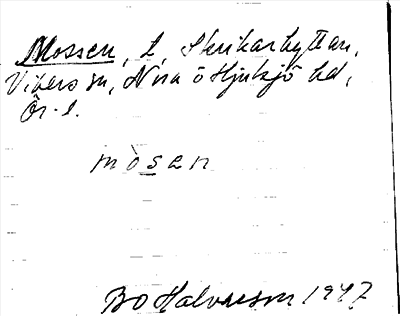 Mossen, l, Skrikarhyttan,
Vikers sn, Nora o Hjulsjö hd,
Ör. l.
mòsen
Bo Halvarson 1947